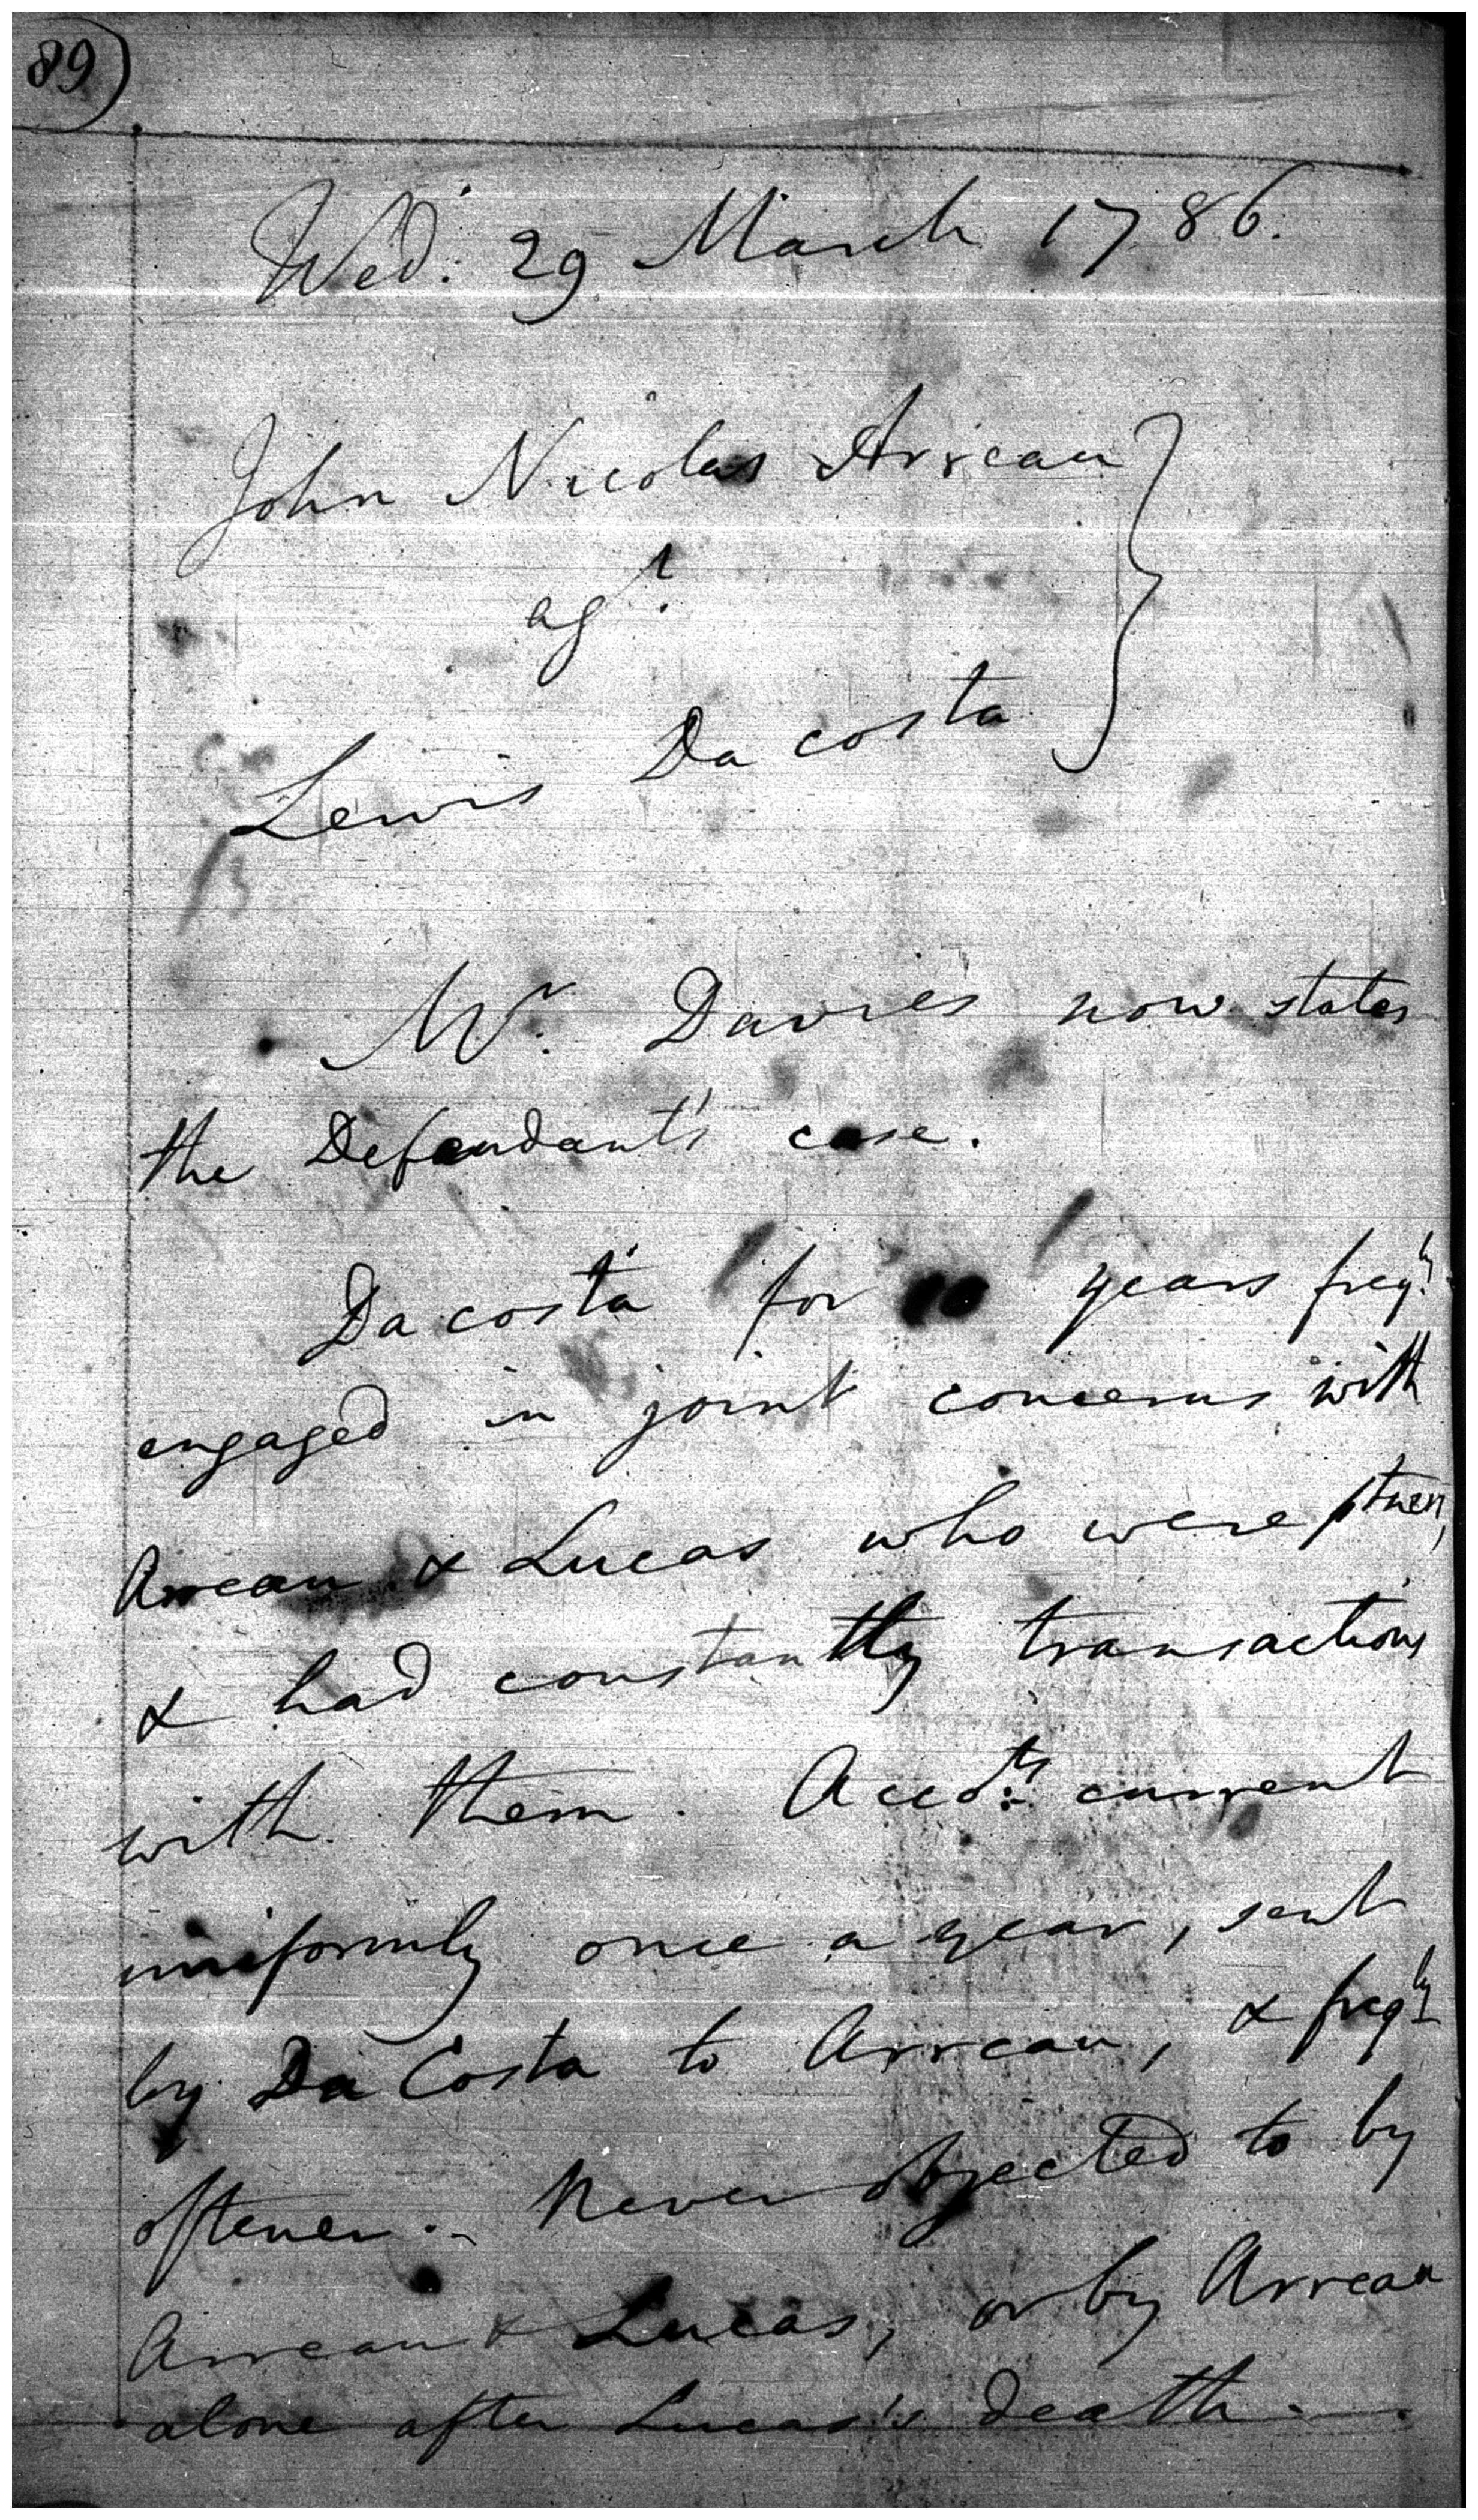 89)
Wed. 29 March 1786.
John Nicolas Arreau
agt.
Lewis Da costa
Mr. Davies now states
the Defendant's case.
Da costa for 10 years freqly
engaged in joint concerns with
Arreau & Lucas who were ptners,
& had constantly transactions
with them. Accots. current
uniformly once a year, sent
by Da Costa to Arreau, & freqly
oftener. Never objected to by
Arreau & Lucas, or by Arreau
alone after Lucas's death.